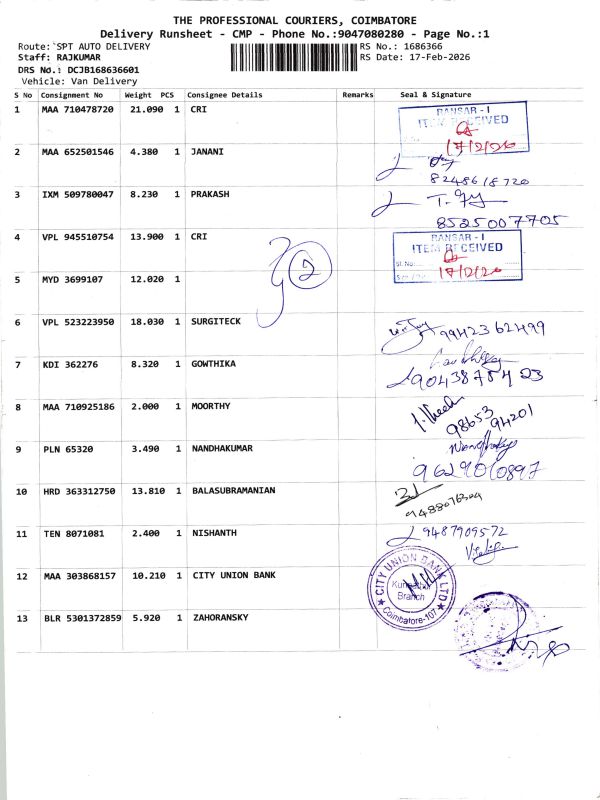 THE PROFESSIONAL COURIERS, COIMBATORE
Delivery Runsheet - CMP - Phone No.:9047080280 - Page No.:1
Route: SPT AUTO DELIVERY RS No.: 1686366
Staff: RAJKUMAR RS Date: 17-Feb-2026
DRS No.: DCJB168636601
Vehicle: Van Delivery
S No Consignment No Weight PCS Consignee Details Remarks Seal & Signature
1 MAA 710478720 21.090 1 CRI
RANSAR - I
ITEM RECEIVED
17/2/26
2 MAA 652501546 4.380 1 JANANI
8248618720
3 IXM 509780047 8.230 1 PRAKASH
8525007705
4 VPL 945510754 13.900 1 CRI
RANSAR - I
ITEM RECEIVED
Sl. No:
17/2/26
2
5 MYD 3699107 12.020 1
6 VPL 523223950 18.030 1 SURGITECK
9942362499
7 KDI 362276 8.320 1 GOWTHIKA
9043878423
8 MAA 710925186 2.000 1 MOORTHY
98653
94201
9 PLN 65320 3.490 1 NANDHAKUMAR
9629010897
10 HRD 363312750 13.810 1 BALASUBRAMANIAN
11 TEN 8071081 2.400 1 NISHANTH
9487909572
12 MAA 303868157 10.210 1 CITY UNION BANK
CITY UNION BANK LTD
Branch
Coimbatore-107
13 BLR 5301372859 5.920 1 ZAHORANSKY